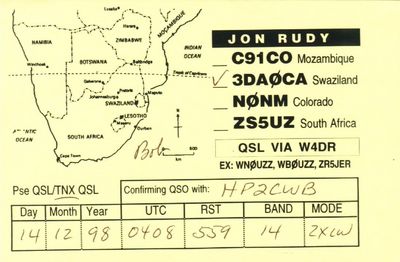 Lusaka
Harare
MOZAMBIQUE
NAMIBIA
ZIMBABWE
INDIAN
OCEAN
Windhoek
BOTSWANA
Beitbridge
Gaborone
Pretoria
Johannesburg
Maputo
SWAZILAND
LESOTHO
Maseru
Durban
SOUTH AFRICA
Cape Town
Bob
JON RUDY
C91CO Mozambique
✓ 3DAØCA Swaziland
NØNM Colorado
ZS5UZ South Africa
QSL VIA W4DR
EX: WNØUZZ, WBØUZZ, ZR5JER
Pse QSL/TNX QSL
Confirming QSO with: HP2CWB
Day Month Year UTC RST BAND MODE
14 12 98 0408 559 14 2XCW